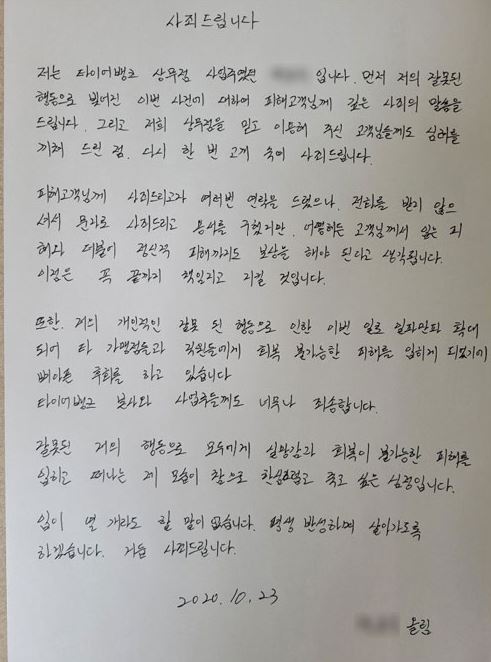 사죄드립니다
저는 타이어뱅크 상무점 사업주였던 입니다. 먼저 저의 잘못된
행동으로 빚어진 이번 사건에 대하여 피해고객님께 깊은 사죄의 말씀을
드립니다. 그리고 저희 상무점을 믿고 이용해 주신 고객님들께도 심려를
끼쳐 드린 점. 다시 한 번 고개 숙여 사죄드립니다.
피해고객님께 사죄드리고자 여러번 연락을 드렸으나, 전화를 받지 않으
셔서 문자로 사죄드리고 용서를 구했지만, 어떻해든 고객님께서 입는 피
해와 더불어 정신적 피해까지도 보상을 해야 된다고 생각됩니다.
이점은 꼭 끝까지 책임지고 지킬 것입니다.
또한. 저의 개인적인 잘못 된 행동으로 인한 이번 일로 일파만파 확대
되어 타 가맹점들과 직원들에게 회복 불가능한 피해를 입히게 되었기에
뼈아픈 후회를 하고 있습니다
타이어뱅크 본사와 사업주들께도 너무나 죄송합니다.
잘못된 저의 행동으로 모두에게 실망감과 회복이 불가능한 피해를
입히고 떠나는 제 모습이 참으로 한심스럽고 죽고 싶은 심정입니다.
입이 열 개라도 할 말이 없습니다. 평생 반성하며 살아가도록
하겠습니다. 거듭 사죄드립니다.
2020.10.23
올림